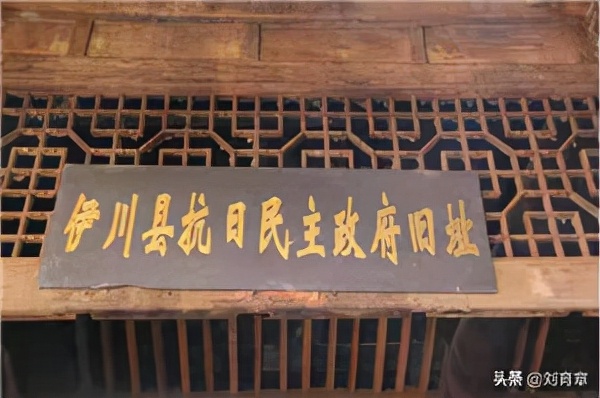 伊川县抗日民主政府旧址
头条 @刘育京